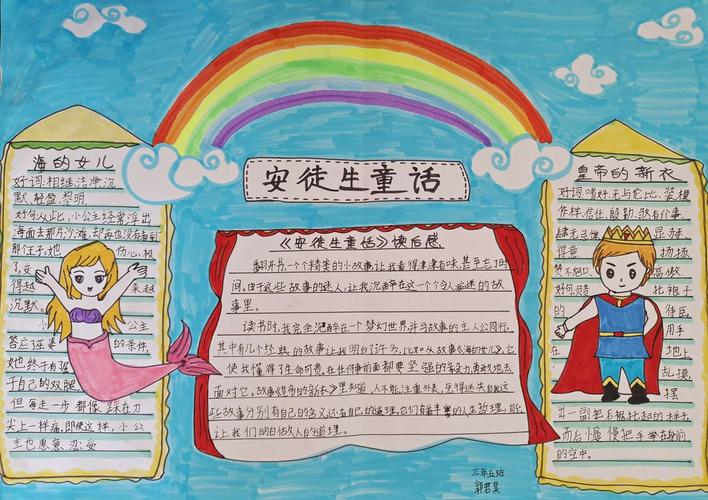 安徒生童话
海的女儿
好词:相继 洁净 沉
默 轻盈 黎明
好句:从此,小公主经常浮出
海面去那片沙滩,却再也没有看到
那个王子,她 伤心极
了,变 来越
得越
沉默。
小 公主
答应了巫婆 的条件,
她终于有了
于自己的双腿
但每走一步都像踩在刀
尖上一样痛,即使这样,小公
主也愿意忍受
《安徒生童话》读后感
翻开书,一个个精美的小故事让我看得津津有味,甚至忘了时
间,由于这些故事的迷人,让我沉醉在这一个个令人着迷的故
事里。
读书时,我完全沉醉在一个梦幻世界,并与故事的主人公同行,
其中有几个经典的故事让我明白了许多,比如从故事《海的女儿》,它
使我懂得了生命可贵,在任何事前面都要坚强的毅力勇敢地去
面对它,故事《皇帝的新衣》里知道,人不能注重外表,免得迷失自我这
些故事分别有自己的含义还有自己的道理,它们有着丰富的人生哲理,能
让我们明白做人的道理。
皇帝的新衣
好词:嗜好 无与伦比 装模
作样 信任 殷勤 煞有介事
肆无忌惮 显赫
得意 扬扬
赞不绝口 高傲
好句:贵 托袍子
的 侍臣
用手
在 地上
乱摸,
摆
出一副把后裾托起的样子
而后慢慢把手举在身前
的空中。
三年五班
郭君昊